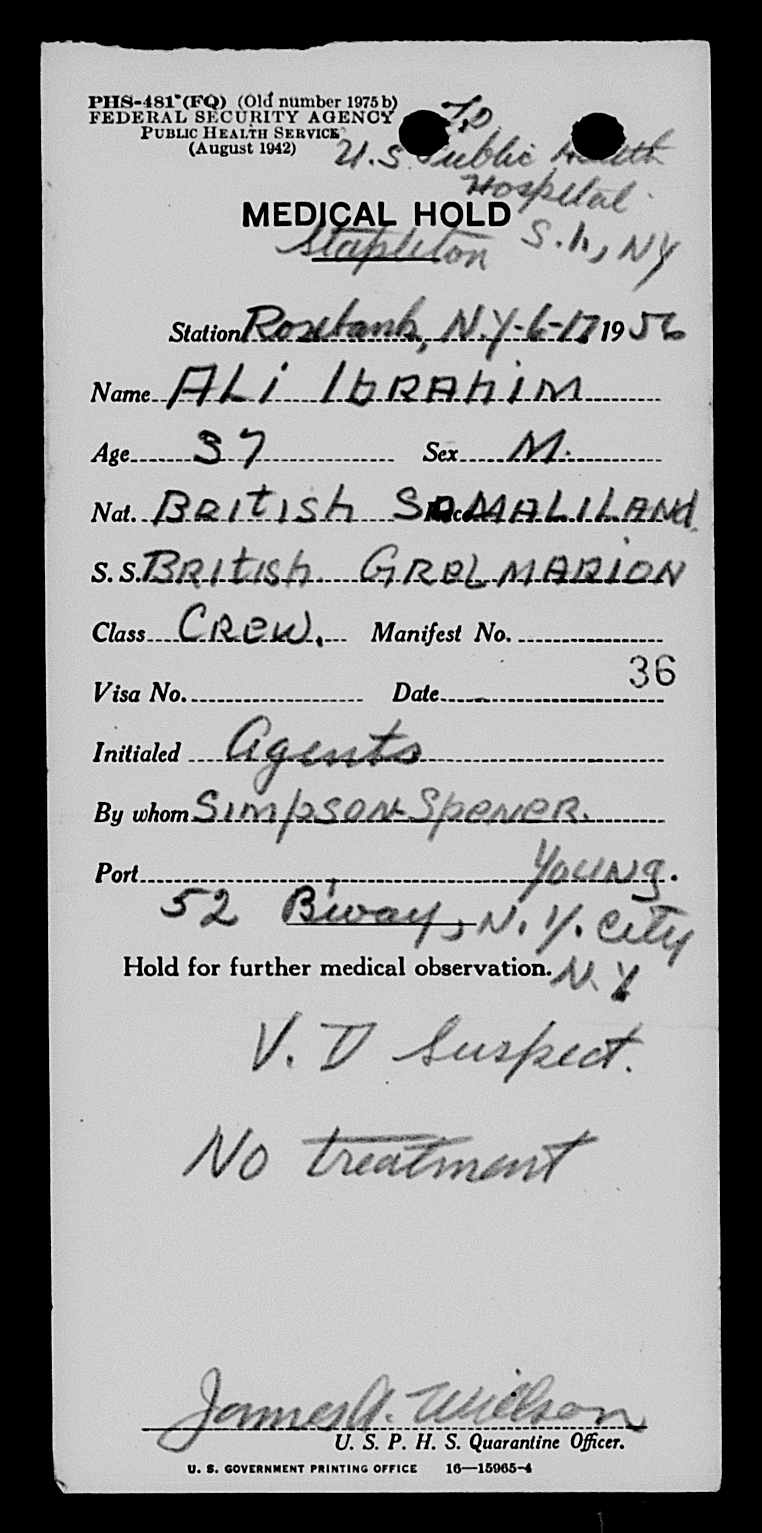 PHS-481 (FQ) (Old number 1975 b)
FEDERAL SECURITY AGENCY
PUBLIC HEALTH SERVICE
(August 1942)
To
U.S. Public Health
Hospital
MEDICAL HOLD
Stapleton S.I., NY
Station Rosebank, N.Y.-6-17 1956
Name ALi IbRAhiM
Age 37 Sex M.
Nat. BRItISh SOMALILANd
S. S. BRItISh GRELMARION
Class CReW. Manifest No.
36
Visa No. Date
Initialed Agents
By whom SIMpSON SpeNeR.
Port YOUNg.
52 B'way, N.Y. City
Hold for further medical observation. N.Y
V. D Suspect.
No treatment
James A. Willson
U. S. P. H. S. Quarantine Officer.
U. S. GOVERNMENT PRINTING OFFICE 16—15965-4